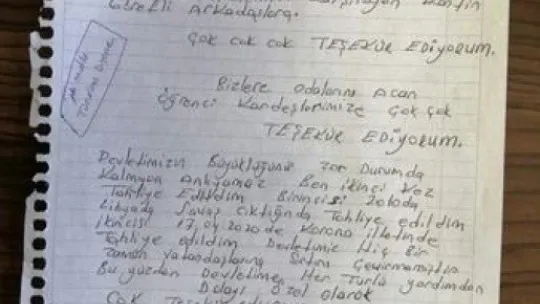 Gerekli Arkadaşlara.
Çok cok cok TEŞEKUR EDiyorum.
Bizlere odalarını Acan
öğrenci Kardeşlerimize çok çok
TEŞEKUR EDiyorum.
Devletimizin Büyüklüğünü zor Durumda
Kalmıyan Anlıyamaz Ben ikinci Kez
Tahliye Edildim Birincisi
Libyada Savaş çıktığında Tahliye edildim
ikincisi 17,04,2020 de Korona illetinde
Tahliye edildim Devletimiz Hiç Bir
zaman vatandaşlarına Sırtını Çevirmemiştir
Bu yüzden Devletimen Her Türlü yardımdan
Dolayı özel olarak
Çok